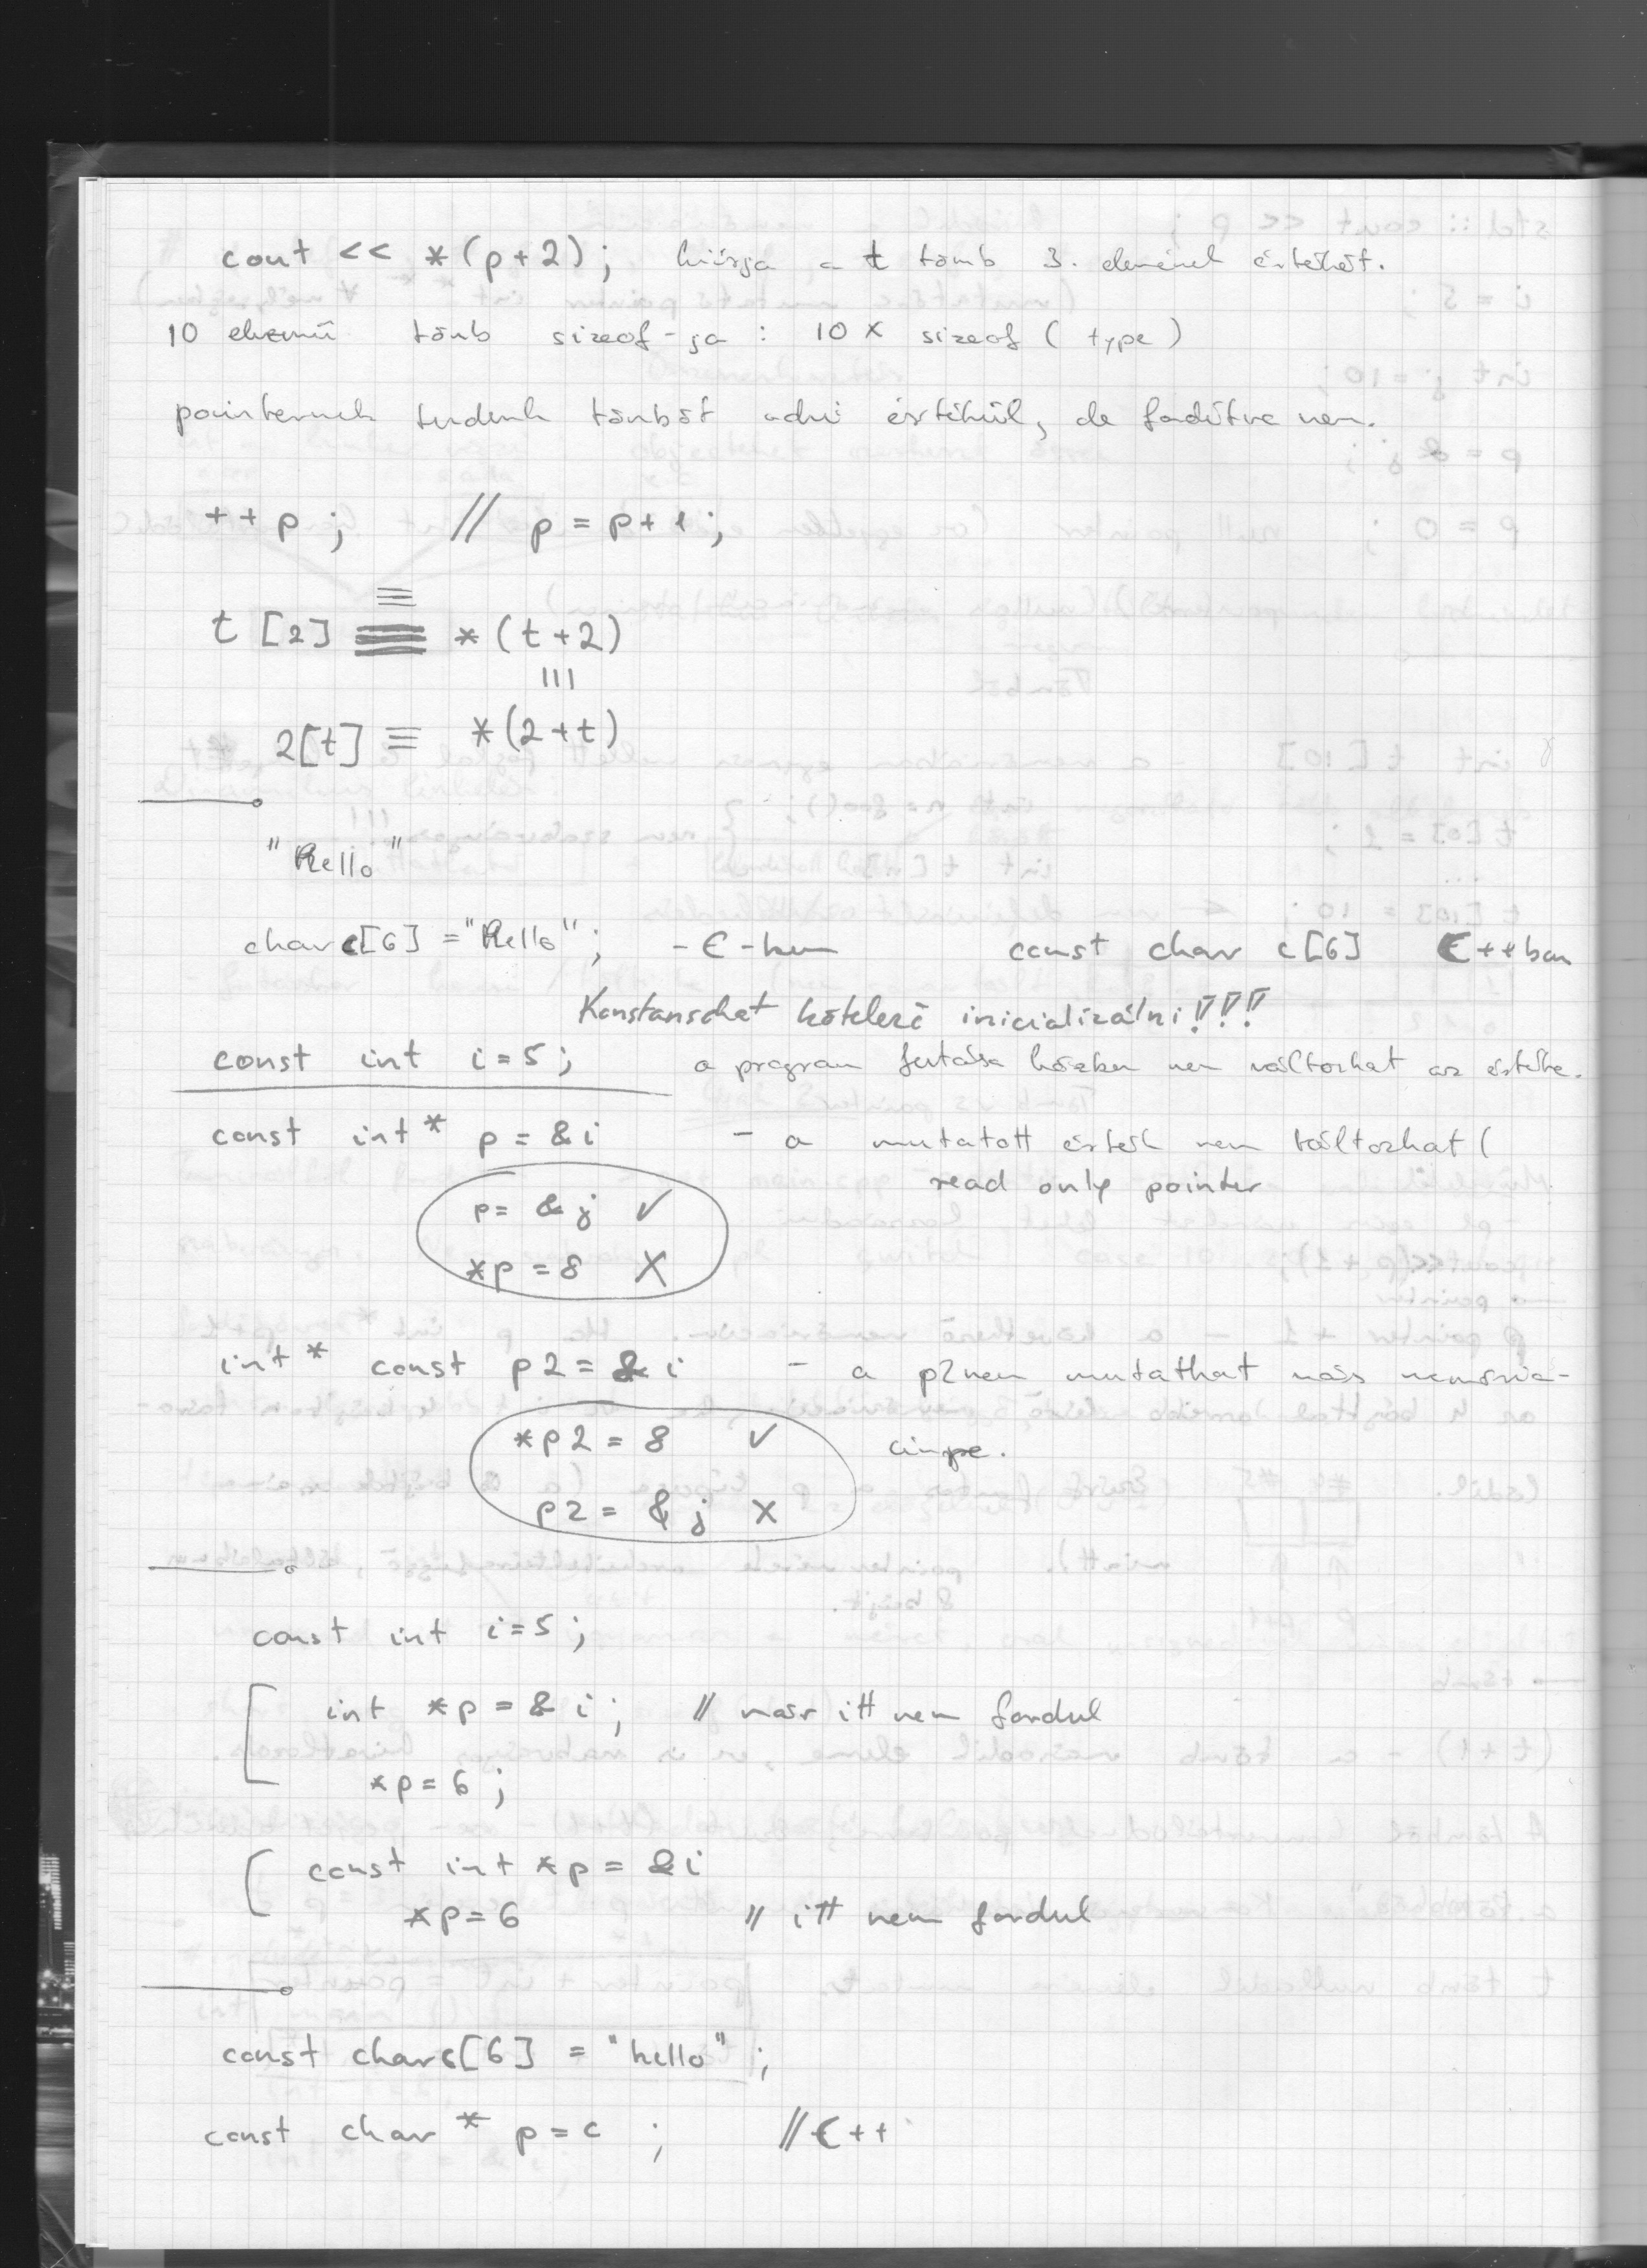 cout << *(p+2); kiírja a t tömb 3. elemének értékét.
10 elemű tömb sizeof-ja : 10 x sizeof ( type )
pointernek tudunk tömböt adni értékül, de fordítva nem.
++p ; // p = p+1;
≡
t [2] ≡ *(t+2)
|||
2[t] ≡ *(2+t)
"Hello"
char c[6] = "Hello"; - C-ben const char c[6] C++ban
Konstansokat kötelező inicializálni!!!
const int i=5; a program futása közben nem változhat az értéke.
const int* p = &i - a mutatott érték nem változhat (
read only pointer
p= &j ✓
*p =8 X
int* const p2= &i - a p2 nem mutathat más memória-
címre.
*p2 = 8 ✓
p2= &j X
const int i=5;
int *p = &i; // már itt nem fordul
*p=6;
const int *p= &i
*p=6 // itt nem fordul
const char c[6] = "hello";
const char* p=c ; //C++